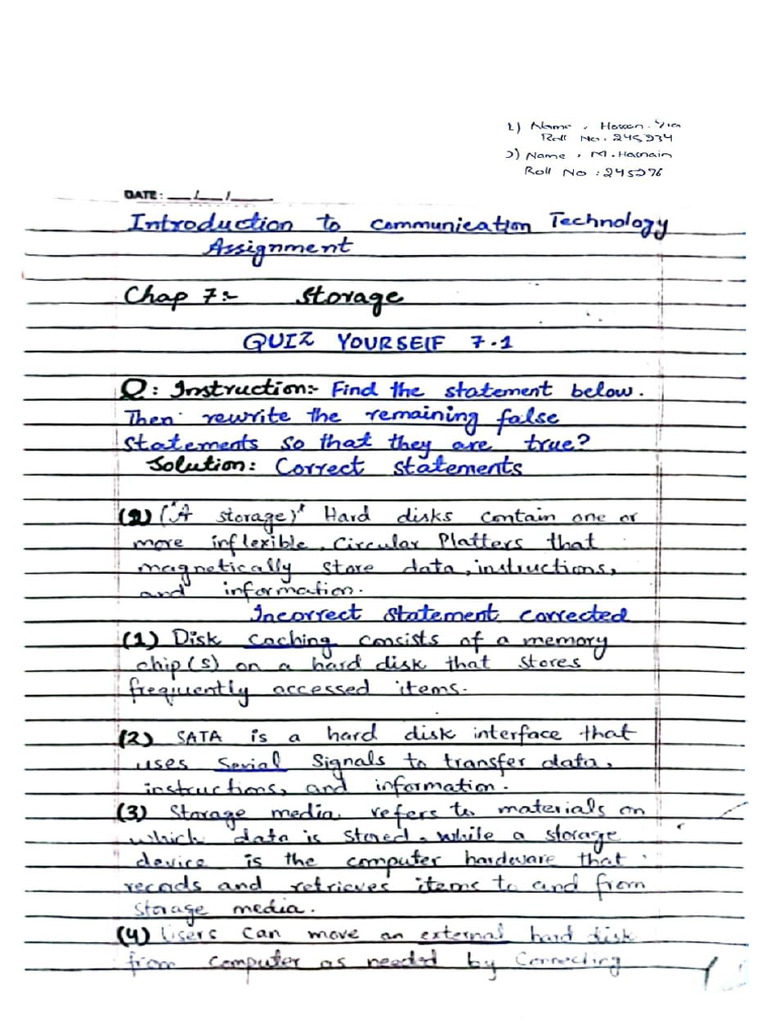 1) Name : Hassan
Roll No : 245934
2) Name : M. Hasnain
Roll No : 245976
DATE: __/__/____
Introduction to communication Technology
Assignment
Chap 7:- Storage
QUIZ YOURSELF 7.1
Q: Instruction:- Find the statement below.
Then rewrite the remaining false
statements so that they are true?
Solution: Correct statements
(2) ("A storage)" Hard disks contain one or
more inflexible, Circular Platters that
magnetically store data, instructions,
and information.
Incorrect Statement corrected
(1) Disk caching consists of a memory
chip(s) on a hard disk that stores
frequently accessed items.
(2) SATA is a hard disk interface that
uses Serial Signals to transfer data,
instructions, and information.
(3) Storage media refers to materials on
which data is stored, while a storage
device is the computer hardware that
records and retrieves items to and from
storage media.
(4) Users can move an external hard disk
from computer as needed by Connecting